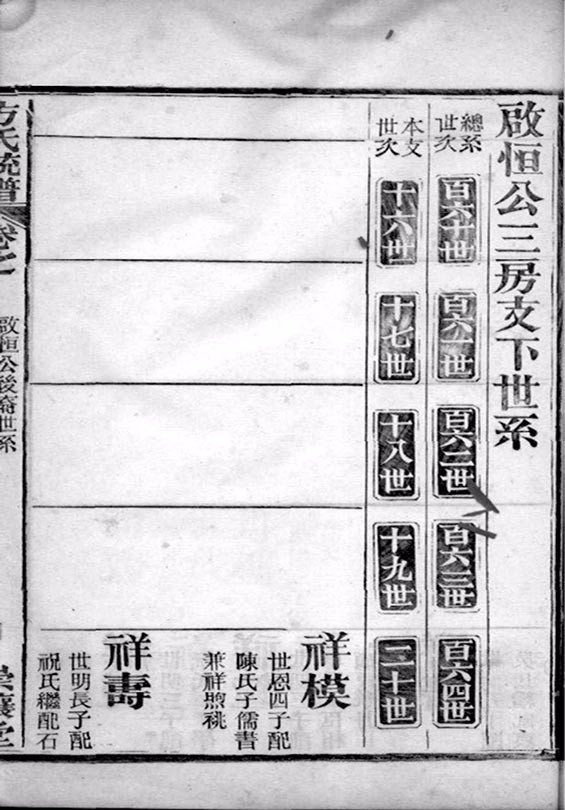 啟恒公三房支下世系
總系世次
百六十世
百六一世
百六二世
百六三世
百六四世
本支世次
十六世
十七世
十八世
十九世
二十世
祥模
世恩四子配
陳氏子儒書
兼祥煦祧
祥壽
世明長子配
祝氏繼配石
方氏統譜
卷之
啟恒公後裔世系